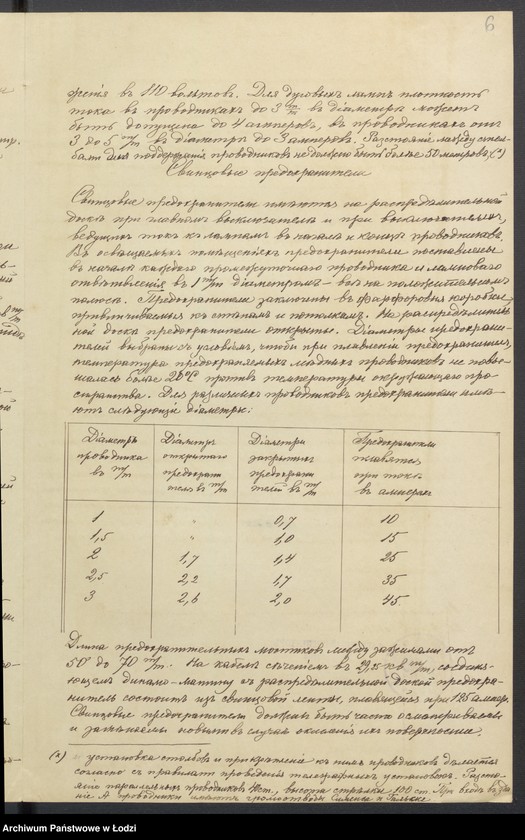 6
жетія въ 110 вольтовъ. Для дуговыхъ лампъ плотность
тока въ проводникахъ до 3 m/m въ діаметрѣ можетъ
быть допущена до 4 амперовъ, въ проводникахъ отъ
3 до 5 m/m въ діаметрѣ до 3 амперовъ. Разстояніе между стол-
бами для поддержанія проводниковъ не должно быть болѣе 50 метровъ. (*)
Свинцовые предохранители
Свинцовые предохранители имѣются на распредѣлительной
доскѣ при главномъ выключателѣ и при выключателяхъ,
ведущихъ токъ къ лампамъ въ началѣ и концѣ проводниковъ.
Въ освѣщаемыхъ помѣщеніяхъ предохранители поставлены
въ началѣ каждаго промежуточнаго проводника и ламповаго
отвѣтвленія въ 1 m/m діаметромъ – всѣ на положительномъ
полюсѣ. Предохранители заключены въ фарфоровыя коробки,
привинчиваемыя къ стѣнамъ и потолкамъ. На распредѣлитель-
ной доскѣ предохранители открытые. Діаметры предохрани-
телей выбраны съ условіемъ, чтобы при плавленіи предохранителя,
температура предохраняемыхъ мѣдныхъ проводниковъ не повы-
шалась болѣе 20°C противъ температуры окружающаго про-
странства. Для различныхъ проводниковъ предохранители имѣ-
ютъ слѣдующіе діаметры:
Діаметръ проводника въ m/m
Діаметръ открытаго предохрани- теля въ m/m
Діаметры закрытыхъ предохрани- телей въ m/m
Предохранители плавятся при токѣ въ амперахъ
1 0,7 10
1,5 1,0 15
2 1,7 1,4 25
2,5 2,2 1,7 35
3 2,6 2,0 45
Длина предохранительныхъ мостковъ между зажимами отъ
50 до 70 m/m. На кабелѣ сѣченіемъ въ кв m/m, соединя-
ющемъ динамо-машину съ распредѣлительной доской предохра-
нитель состоитъ изъ свинцовой ленты, плавящейся при 125 ампер.
Свинцовые предохранители должны быть часто осматриваемы
и замѣняемы новыми въ случаѣ окисанія ихъ поверхности.
(*) установка столбовъ и прикрѣпленіе къ нимъ проводниковъ дѣлается
согласно съ правилами проведенія телеграфныхъ установокъ. Разстоя-
ніе параллельныхъ проводниковъ 40 ст., высота стрѣлки 100 ст. При входѣ въ зда-
ніе проводники имѣютъ громоотводы Сименсъ и Гальске
Archiwum Państwowe w Łodzi